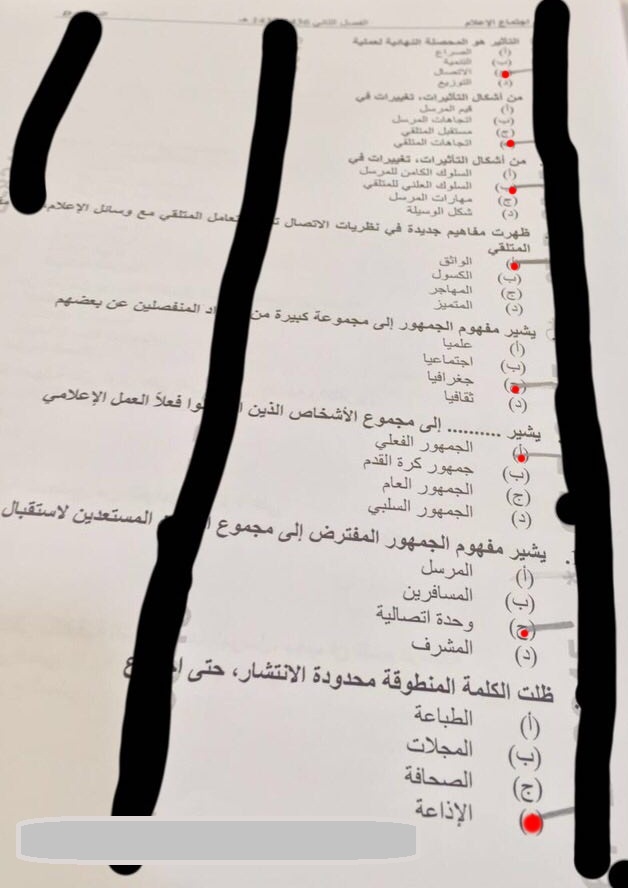 اجتماع الإعلام
الفصل الثاني
التأثير هو المحصلة النهائية لعملية
(أ) الصراع
(ب) التنمية
الاتصال
(د) التوزيع
من أشكال التأثيرات، تغييرات في
(أ) قيم المرسل
(ب) اتجاهات المرسل
(ج) مستقبل المتلقي
اتجاهات المتلقي
من أشكال التأثيرات، تغييرات في
(أ) السلوك الكامن للمرسل
(ب) السلوك العلني للمتلقي
(ج) مهارات المرسل
(د) شكل الوسيلة
ظهرت مفاهيم جديدة في نظريات الاتصال تعامل المتلقي مع وسائل الإعلام
المتلقي
الواثق
(ب) الكسول
(ج) المهاجر
(د) المتميز
يشير مفهوم الجمهور إلى مجموعة كبيرة من المنفصلين عن بعضهم
(أ) علميا
(ب) اجتماعيا
(ج) جغرافيا
(د) ثقافيا
يشير .......... إلى مجموع الأشخاص الذين فعلاً العمل الإعلامي
(أ) الجمهور الفعلي
(ب) جمهور كرة القدم
(ج) الجمهور العام
(د) الجمهور السلبي
يشير مفهوم الجمهور المفترض إلى مجموع المستعدين لاستقبال
(أ) المرسل
(ب) المسافرين
(ج) وحدة اتصالية
(د) المشرف
ظلت الكلمة المنطوقة محدودة الانتشار، حتى
(أ) الطباعة
(ب) المجلات
(ج) الصحافة
الإذاعة